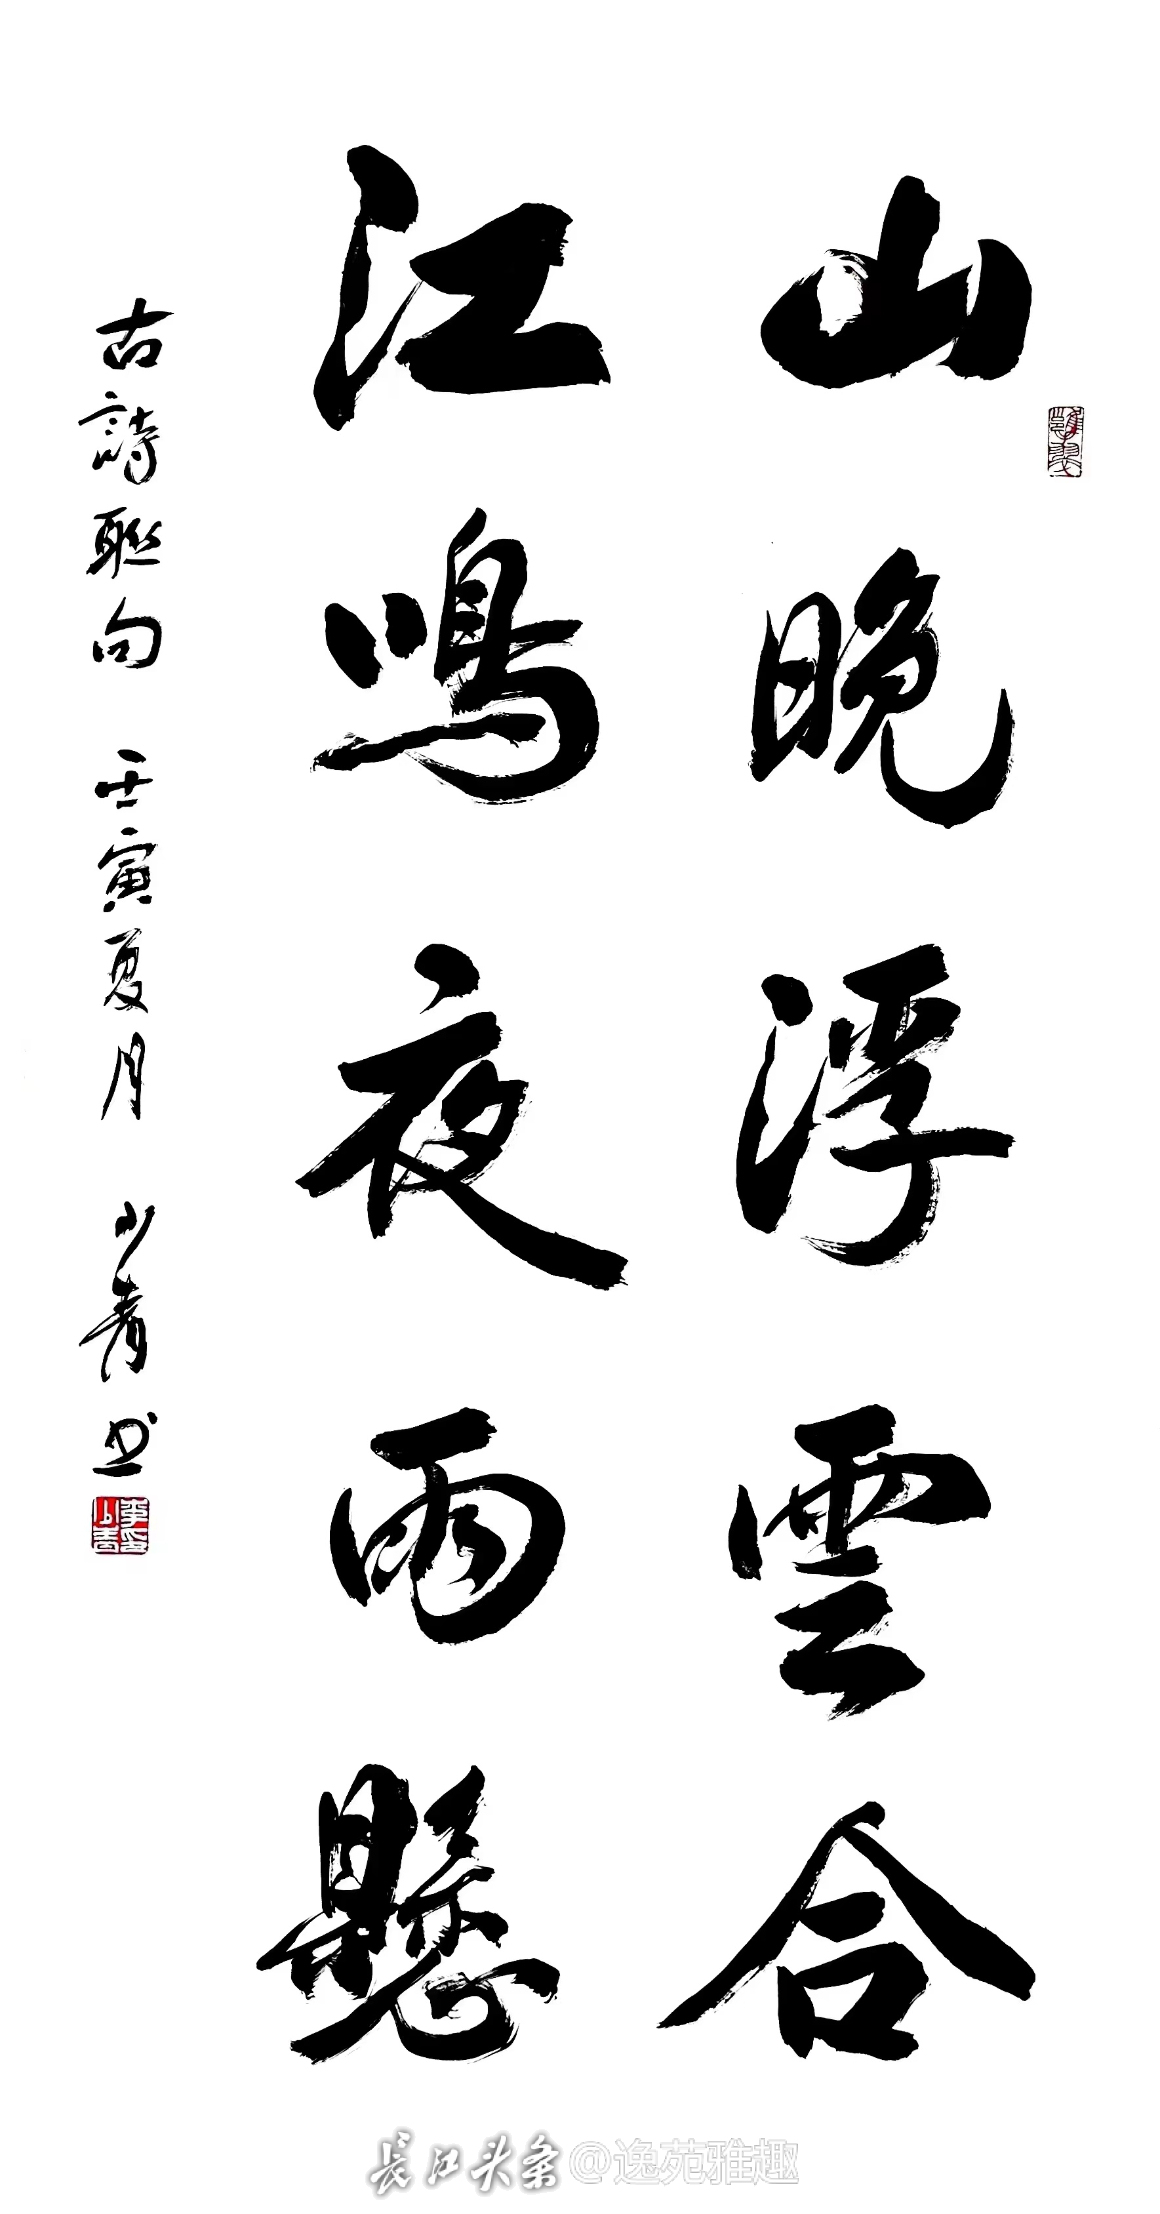 山晚浮雲合
江鳴夜雨懸
古詩聯句 壬寅夏月 少青书
長江头条@逸苑雅趣